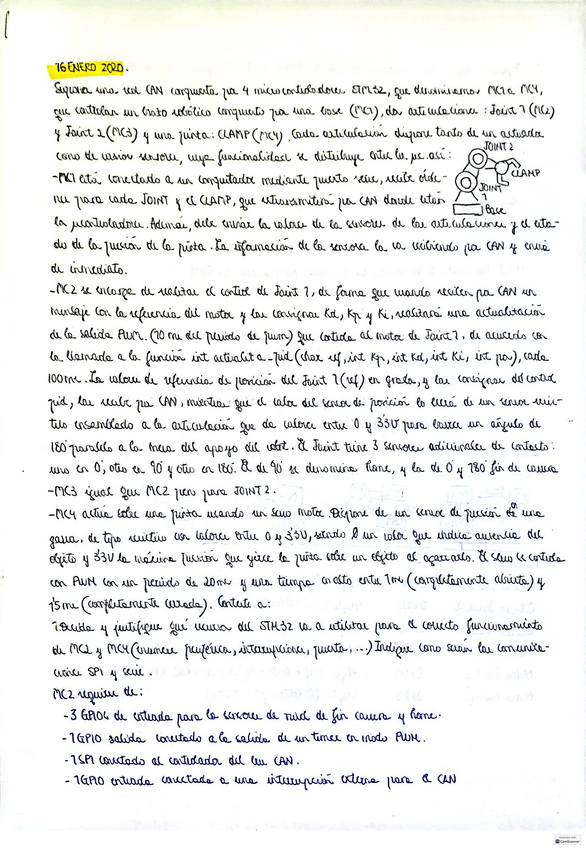 16 ENERO 2020.
Suponga una red CAN compuesta por 4 microcontroladores STM32, que denominamos MC1 a MC4,
que controlan un brazo robótico compuesto por una base (MC1), dos articulaciones: Joint 1 (MC2)
y Joint 2 (MC3) y una pinza: CLAMP (MC4). Cada articulación dispone tanto de un actuador
como de varios sensores, cuya funcionalidad se distribuye entre los µc así:
JOINT 2
CLAMP
JOINT 1
Base
-MC1 está conectado a un computador mediante puerto serie, recibe órde-
nes para cada JOINT y el CLAMP, que retransmitirá por CAN donde están
los µcontroladores. Además, debe enviar los valores de los sensores de las articulaciones y el esta-
do de la presión de la pinza. La información de los sensores la va recibiendo por CAN y envía
de inmediato.
-MC2 se encarga de realizar el control de Joint 1, de forma que cuando reciben por CAN un
mensaje con la referencia del motor y las consignas Kd, Kp y Ki, realizará una actualización
de la salida PWM. (10 ms del periodo de pwm) que controla al motor de Joint 1, de acuerdo con
la llamada a la función int actualiza_pid (char ref, int Kp, int Kd, int Ki, int pos), cada
100ms. Los valores de referencia de posición del Joint 1 (ref) en grados, y las consignas del control
pid, las recibe por CAN, mientras que el valor del sensor de posición lo leerá de un sensor resis-
tivo ensamblado a la articulación que da valores entre 0 y 3'3V para barrer un ángulo de
180° paralelo a la mesa del apoyo del robot. El Joint tiene 3 sensores adicionales de contacto:
uno en 0°, otro en 90° y otro en 180°. El de 90° se denomina home, y los de 0° y 180° fin de carrera
-MC3 igual que MC2 pero para JOINT 2.
-MC4 actúa sobre una pinza usando un servo motor. Dispone de un sensor de presión de una
garra, de tipo resistivo con valores entre 0 y 3'3V, siendo 0 un valor que indica ausencia del
objeto y 3'3V la máxima presión que ejerce la pinza sobre un objeto al agarrarlo. El servo se controla
con PWM con un periodo de 20ms y un tiempo en alto entre 1ms (completamente abierta) y
1'5ms (completamente cerrada). Conteste a:
1 Decida y justifique qué recursos del STM32 va a utilizar para el correcto funcionamiento
de MC2 y MC4 (enumere periféricos, interrupciones, puertos, ...) Indique como serán las comunica-
ciones SPI y serie.
MC2 requiere de:
-3 GPIOs de entrada para los sensores de nivel de fin carrera y home.
-1 GPIO salida conectado a la salida de un timer en modo PWM.
-1 SPI conectado al controlador del bus CAN.
-1 GPIO entrada conectada a una interrupción externa para el CAN